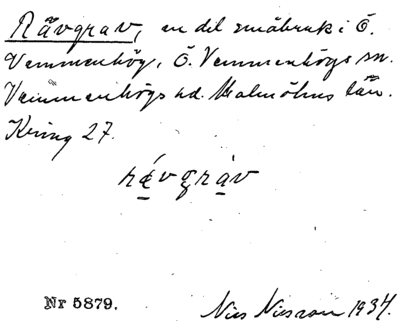 Rävgrav, en del småbruk i Ö.
Vemmenhög, Ö. Vemmenhögs sn.
Vemmenhögs hd. Malmöhus län.
Kring 27.
rǽvgràv
Nr 5879.
Nils Nilsson 1934.